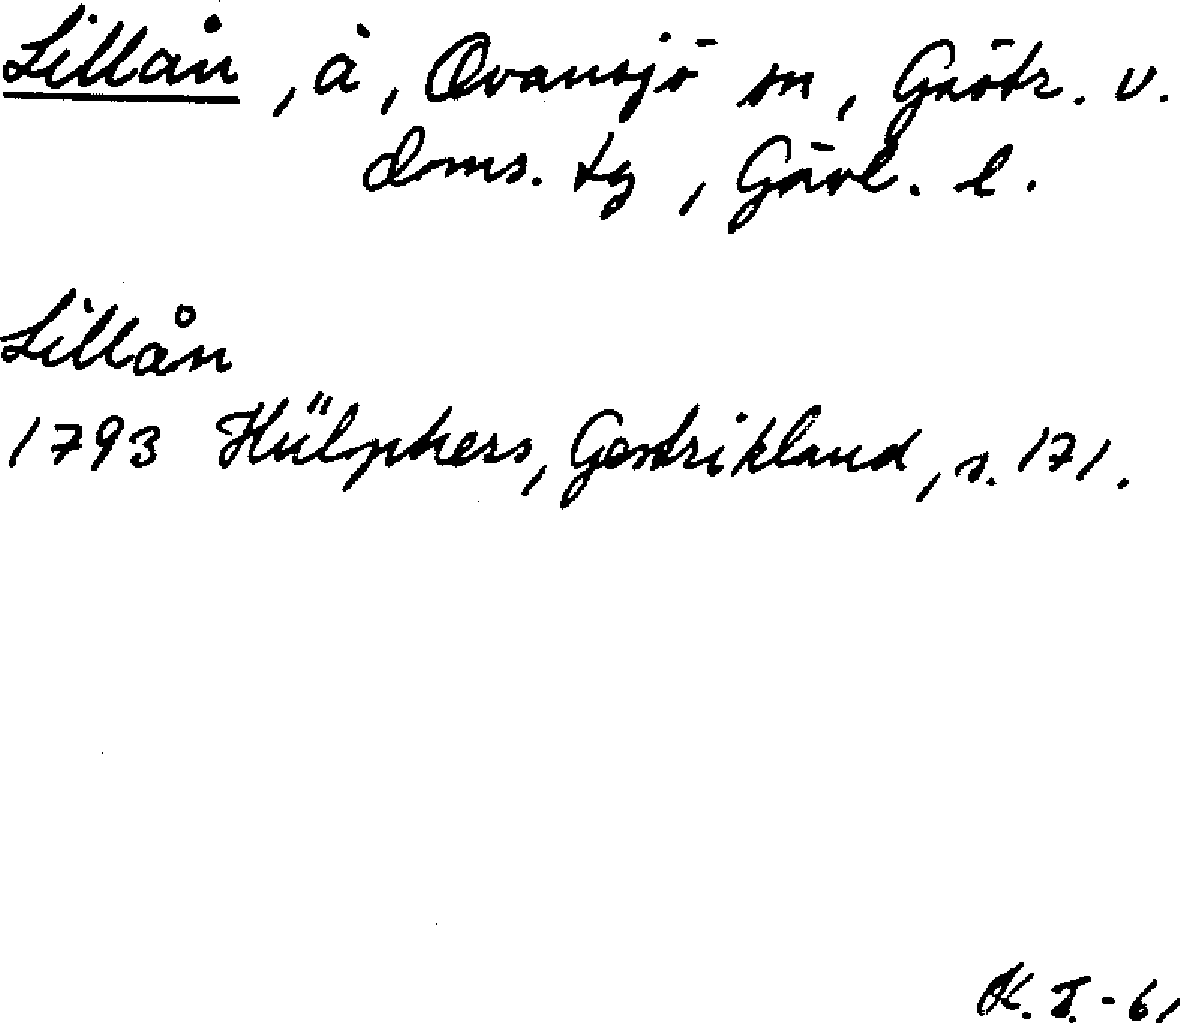 Lillån, å, Ovansjö sn, Gästr. v.
dms. tg, Gävl. l.
Lillån
1793 Hülphers, Gestrikland, s. 171.
K. I. - 61